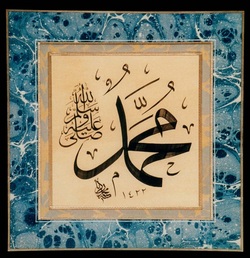 محمد
صلى الله عليه وسلم
١٤٢٣